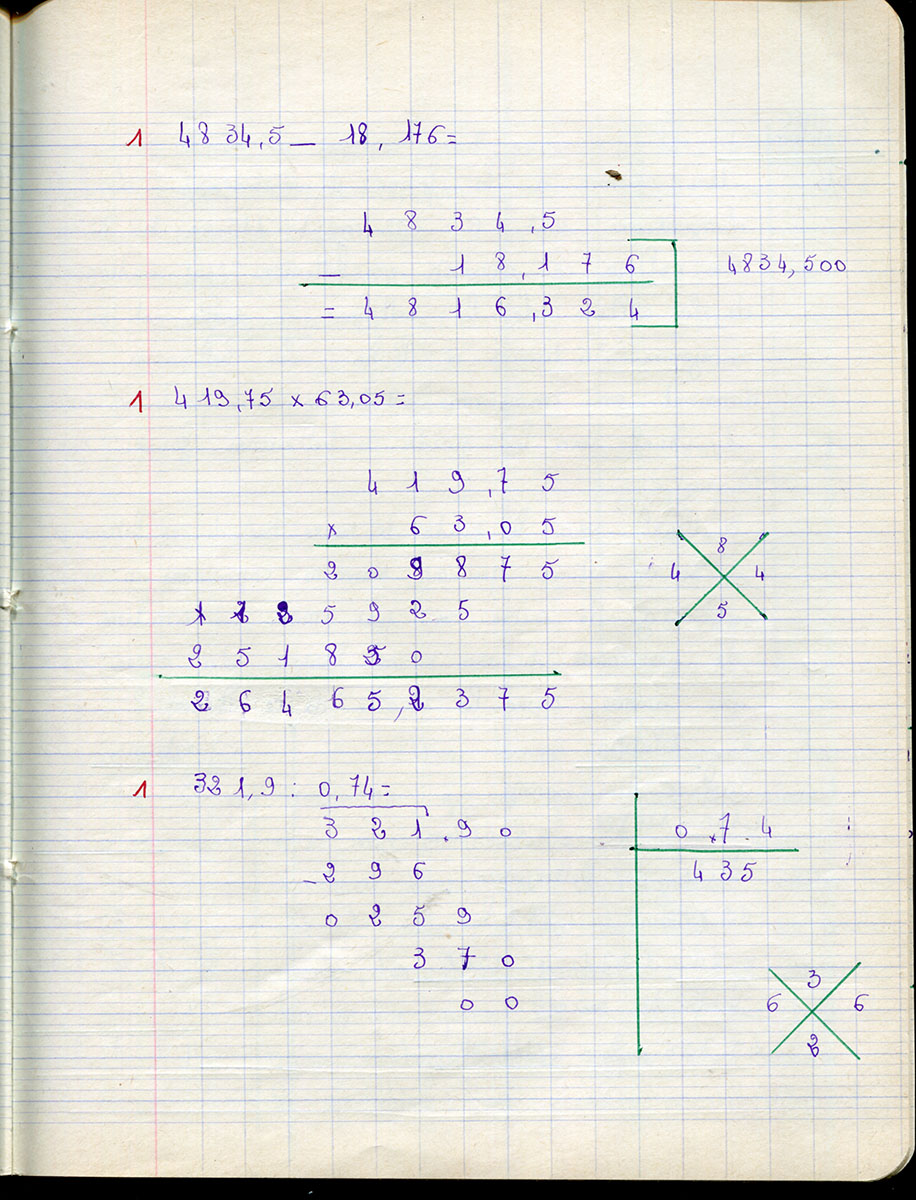 1 4834,5 - 18,176 =
4 8 3 4 ,5
- 1 8,1 7 6
4834,500
= 4 8 1 6 ,3 2 4
1 419,75 x 63,05 =
4 1 9 ,7 5
x 6 3 ,0 5
2 0 9 8 7 5
1 2 5 9 2 5
2 5 1 8 5 0
2 6 4 6 5 ,2 3 7 5
8
4 4
5
1 321,9 : 0,74 =
3 2 1 . 9 0
0 , 7 . 4
- 2 9 6
435
0 2 5 9
3 7 0
0 0
3
6 6
2